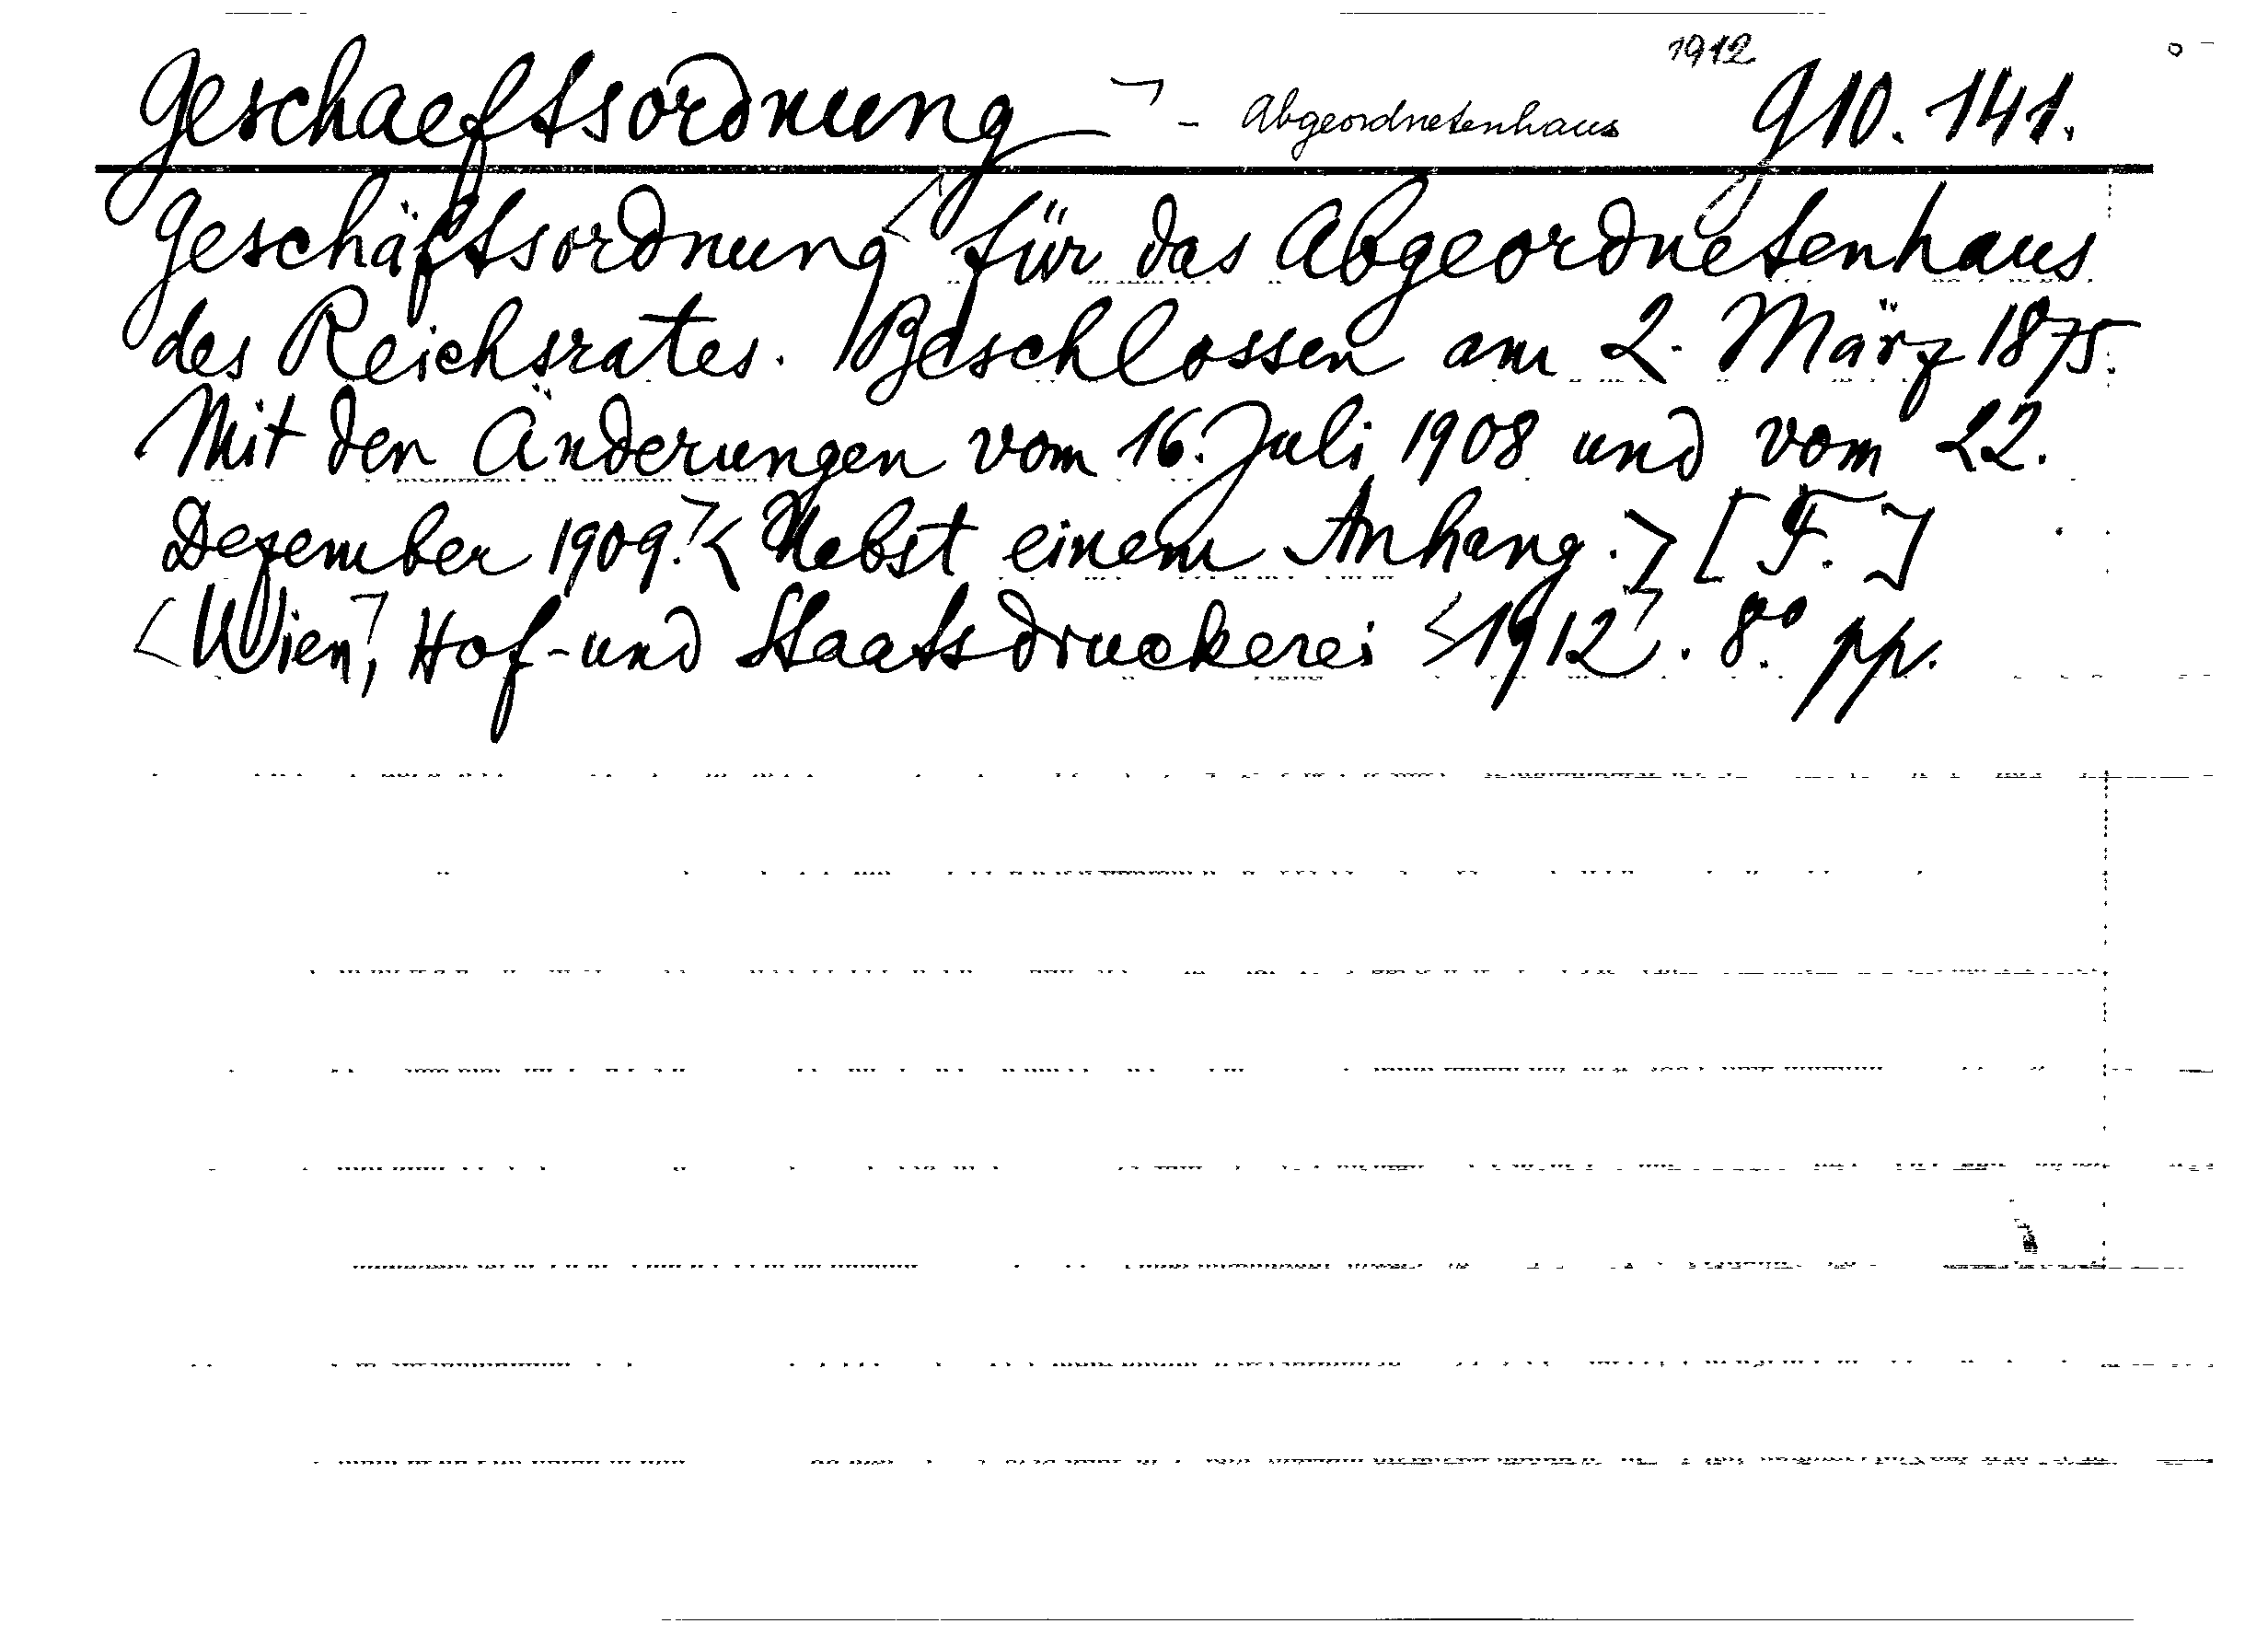 1912
Geschaeftsordnung - Abgeordnetenhaus 910.141.
Geschäftsordnung für das Abgeordnetenhaus
des Reichsrates. Beschlossen am 2. März 1875.
Mit den Änderungen vom 16. Juli 1908 und vom 22.
Dezember 1909. < Nebst einem Anhang. > [F.]
<Wien>, Hof- und Staatsdruckerei <1912>. 8° pp.